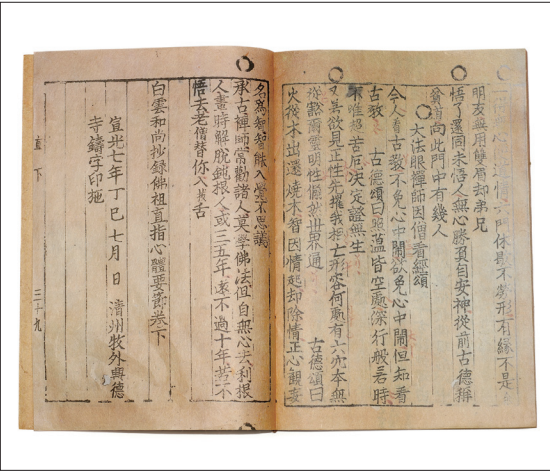 休歇不勞形有緣不是
明友無用雙眉却弟兄
悟了還同未悟人無心勝負自安神從前古德稱
貧道向此門中有幾人
大法眼禪師因僧看經頌
今人看古教不免心中鬧欲免心中鬧但知看
古教 古德頌曰照蘊皆空處深行般若時
不惟超苦厄決定證無生
欲見正性先 我相亡形容何處有六穴本無
豁爾靈明性儼然世界通 古德頌曰
火從木出還燒木智因情起却除情正心觀妄
名為智智能入覺不思議
承古禪師常勸諸人莫學佛法但自無心去利根
人畫時解脫鈍根人或三五年遠不過十年若不
悟去老僧替你入拔舌
白雲和尚抄錄佛祖直指心體要節卷下
宣光七年丁巳七月 日 清州牧外興德
寺鑄字印施
直下 三十九